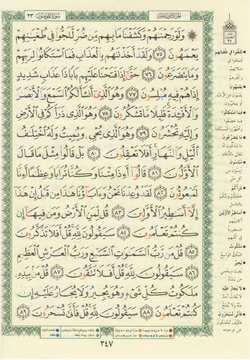 وَلَوْ رَحِمْنَٰهُمْ وَكَشَفْنَا مَا بِهِم مِّن ضُرٍّ لَّلَجُّوا۟ فِى طُغْيَٰنِهِمْ
يَعْمَهُونَ ٧٥ وَلَقَدْ أَخَذْنَٰهُم بِٱلْعَذَابِ فَمَا ٱسْتَكَانُوا۟ لِرَبِّهِمْ
وَمَا يَتَضَرَّعُونَ ٧٦ حَتَّىٰٓ إِذَا فَتَحْنَا عَلَيْهِم بَابًا ذَا عَذَابٍ شَدِيدٍ
إِذَا هُمْ فِيهِ مُبْلِسُونَ ٧٧ وَهُوَ ٱلَّذِىٓ أَنشَأَ لَكُمُ ٱلسَّمْعَ وَٱلْأَبْصَٰرَ
وَٱلْأَفْـِٔدَةَ قَلِيلًا مَّا تَشْكُرُونَ ٧٨ وَهُوَ ٱلَّذِى ذَرَأَكُمْ فِى ٱلْأَرْضِ
وَإِلَيْهِ تُحْشَرُونَ ٧٩ وَهُوَ ٱلَّذِى يُحْىِۦ وَيُمِيتُ وَلَهُ ٱخْتِلَٰفُ
ٱلَّيْلِ وَٱلنَّهَارِ أَفَلَا تَعْقِلُونَ ٨٠ بَلْ قَالُوا۟ مِثْلَ مَا قَالَ
ٱلْأَوَّلُونَ ٨١ قَالُوٓا۟ أَءِذَا مِتْنَا وَكُنَّا تُرَابًا وَعِظَٰمًا أَءِنَّا
لَمَبْعُوثُونَ ٨٢ لَقَدْ وُعِدْنَا نَحْنُ وَءَابَآؤُنَا هَٰذَا مِن قَبْلُ إِنْ هَٰذَآ
إِلَّآ أَسَٰطِيرُ ٱلْأَوَّلِينَ ٨٣ قُل لِّمَنِ ٱلْأَرْضُ وَمَن فِيهَآ إِن
كُنتُمْ تَعْلَمُونَ ٨٤ سَيَقُولُونَ لِلَّهِ قُلْ أَفَلَا تَذَكَّرُونَ
٨٥ قُلْ مَن رَّبُّ ٱلسَّمَٰوَٰتِ ٱلسَّبْعِ وَرَبُّ ٱلْعَرْشِ ٱلْعَظِيمِ
٨٦ سَيَقُولُونَ لِلَّهِ قُلْ أَفَلَا تَتَّقُونَ ٨٧ قُلْ مَنۢ بِيَدِهِۦ
مَلَكُوتُ كُلِّ شَىْءٍ وَهُوَ يُجِيرُ وَلَا يُجَارُ عَلَيْهِ إِن
كُنتُمْ تَعْلَمُونَ ٨٨ سَيَقُولُونَ لِلَّهِ قُلْ فَأَنَّىٰ تُسْحَرُونَ ٨٩
٣٤٧